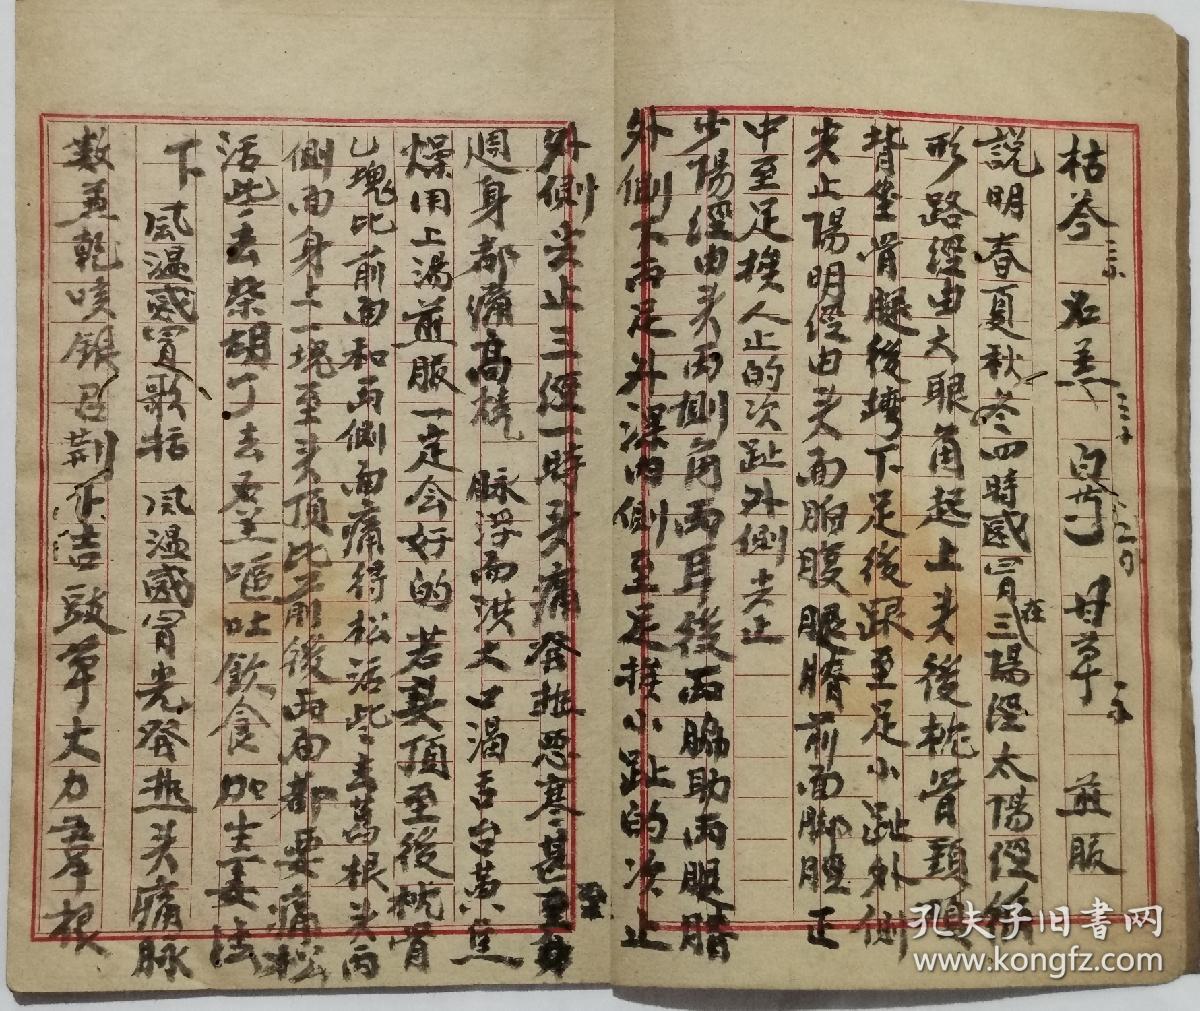 枯芩 三錢 名羔 三个 白芍 二个 甘草 一个 煎服
説明春夏秋冬四時感冒在三陽經太陽經絡
形路經由大眼角起上头後枕骨頸項
背坐骨腿後灣下足後跟至足小趾外側
尖止陽明經由头面胸腹腿臍前面脚脛正
中至足挨人止的次趾外側尖止
少陽經由头兩側角兩耳後兩脇助兩腿腊
外側下兩足外深內側至足挨小趾的次止
外側尖止三經一時头痛發热恶寒甚至身
週身都痛高燒 脉浮而洪大口渴舌台黄焦
燥用上湯煎服一定会好的 若要頂至後枕骨
乚塊比前面和兩側面痛得松活些去萬根头兩
側面身上一塊至头頂比前後兩面都要痛松
活些去柴胡丁去 嘔吐飲食加生姜法
下 風温感冒歌括 風温感冒发發热头痛脉
数並乾咳銀召荆 吉豉草大力 根
孔夫子旧书网
www.kongfz.com